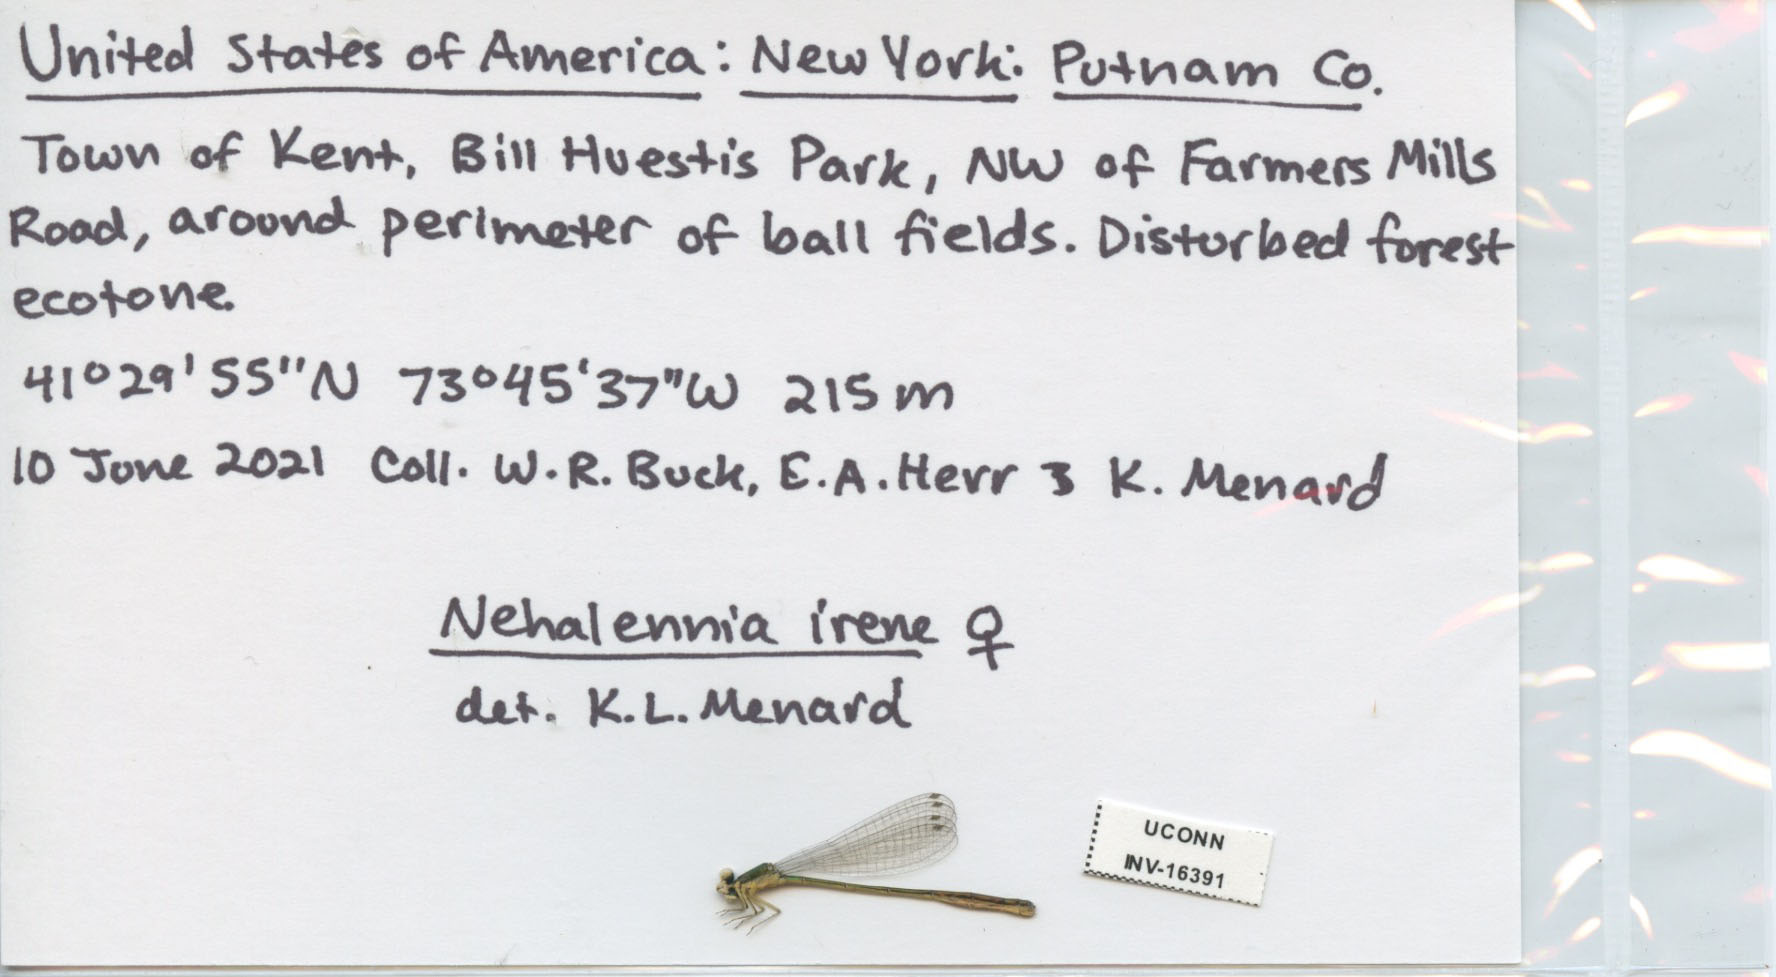 United States of America: New York: Putnam Co.
Town of Kent, Bill Huestis Park, NW of Farmers Mills
Road, around perimeter of ball fields. Disturbed forest
ecotone.
41°29'55"N 73°45'37"W 215 m
10 June 2021 Coll. W.R. Buck, E.A. Herr & K. Menard
Nehalennia irene ♀
det. K.L. Menard
UCONN
INV-16391